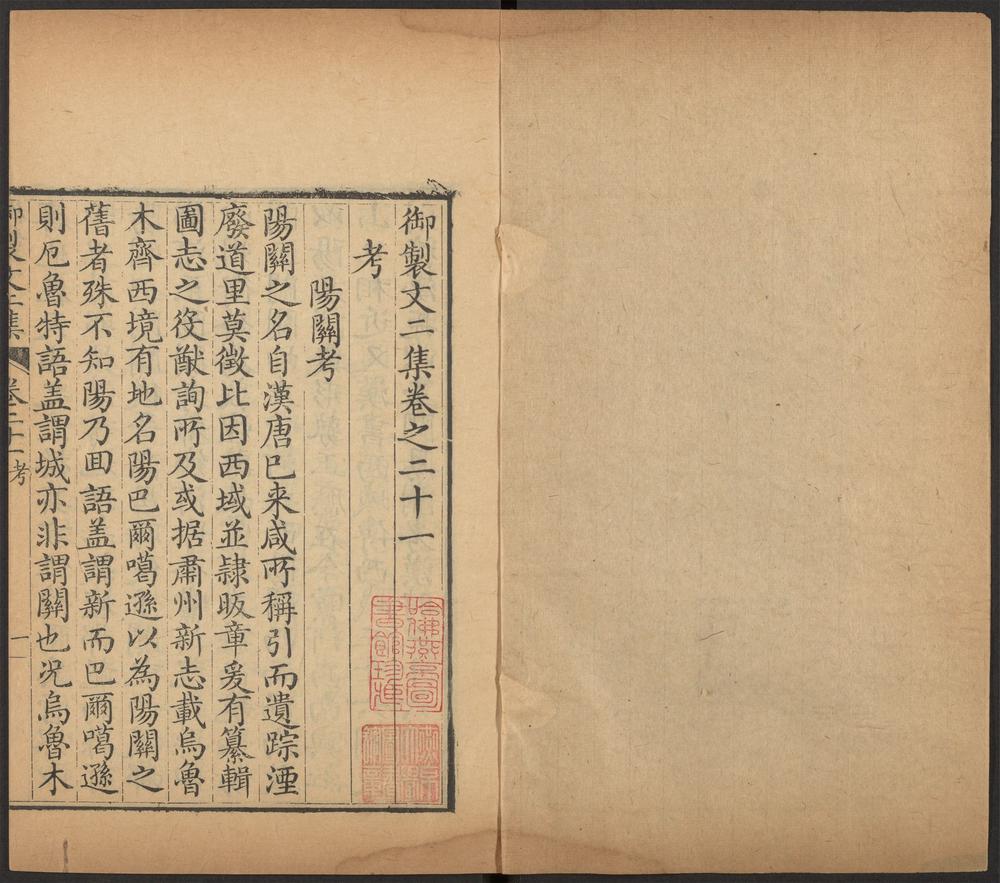 御製文二集卷之二十一
考
陽關考
陽關之名自漢唐已来咸所稱引而遺踪湮
廢道里莫徵比因西域並隷昄章爰有纂輯
圖志之役猷詢所及或据肅州新志載烏魯
木齊西境有地名陽巴爾噶遜以為陽關之
舊者殊不知陽乃回語盖謂新而巴爾噶遜
則厄魯特語盖謂城亦非謂關也况烏魯木
御製文二集
卷二十一 考
一
哈佛燕京圖
書館珍藏